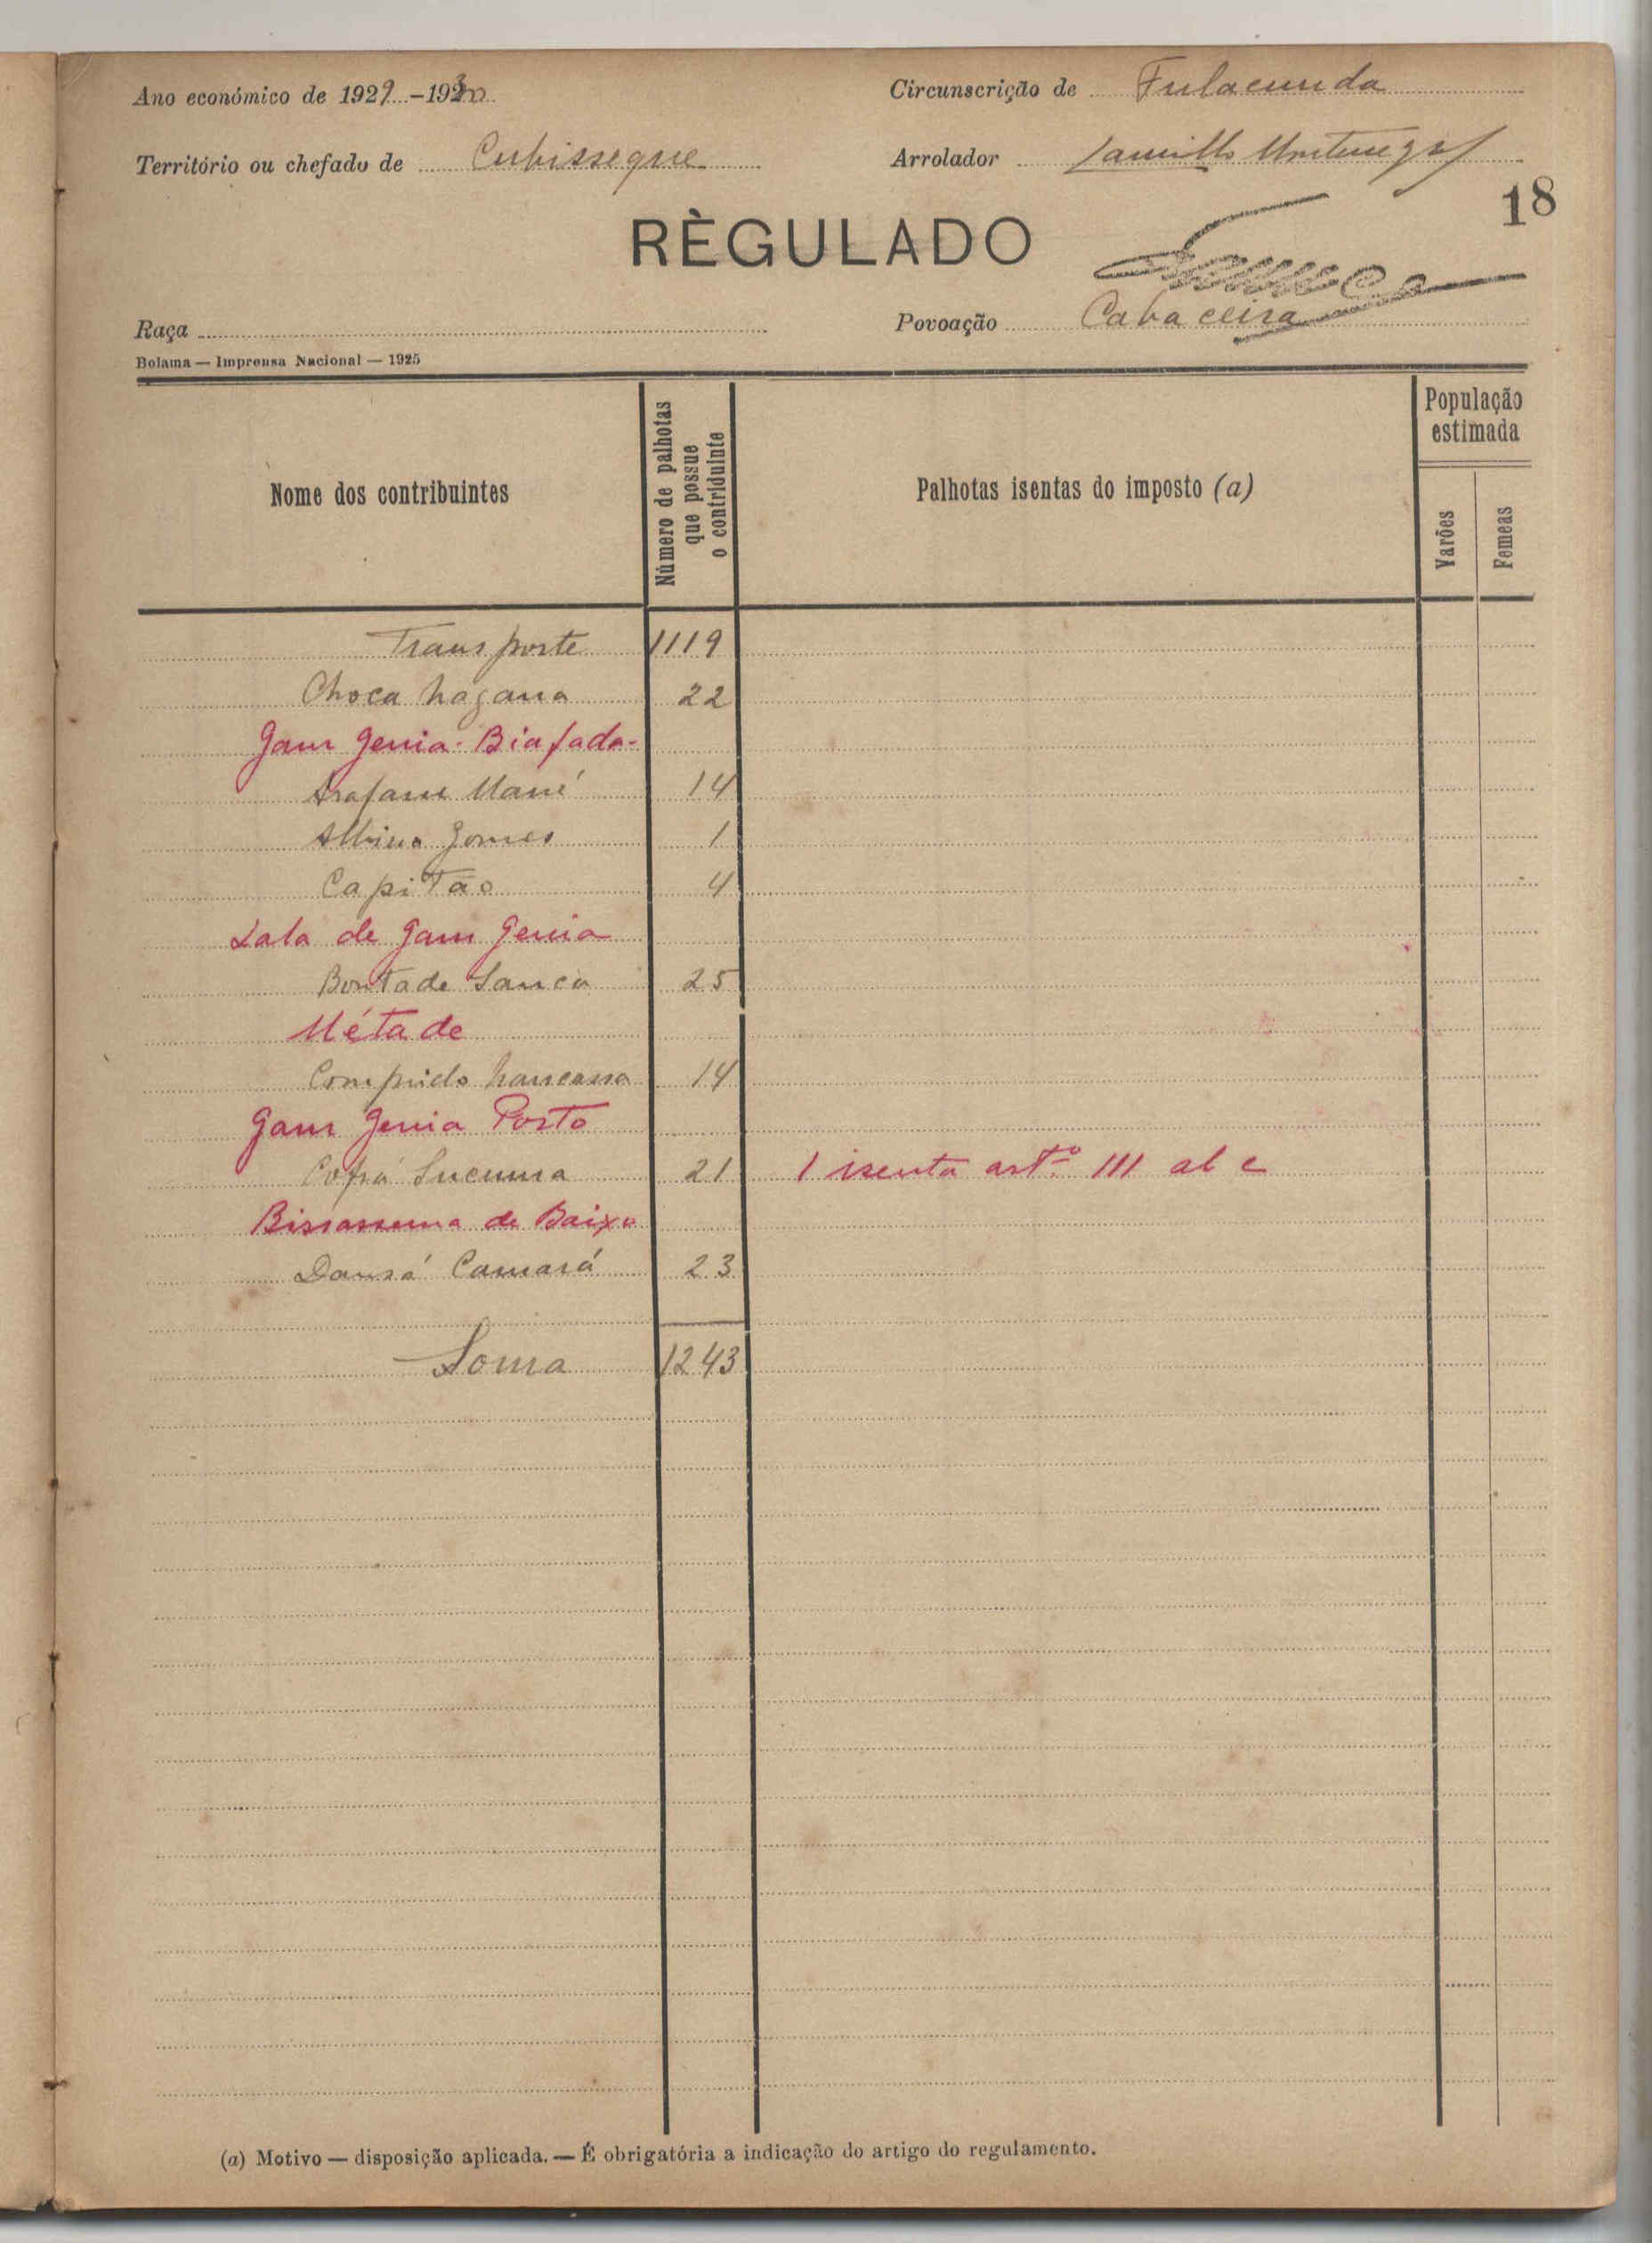 Ano económico de 1929-1930
Circunscrição de Fulacunda
Território ou chefado de Cubisseque
Arrolador
18
RÈGULADO
Raça
Povoação Cabaceira
Bolama — Imprensa Nacional — 1925
Nome dos contribuintes
Número de palhotas que possue o contriduinte
Palhotas isentas do imposto (a)
População estimada
Varões
Femeas
Transporte 1119
Choca 22
Gam Genia - Biafada -
Arafam Mané 14
Albino Gomes 1
Capitão 4
Lala de Gam Genia
Bontade Sanca 25
Métade
Comprido 14
Gam Genia Porto
21 1 isenta artº 111 al c
Bissassema de Baixo
Dansá Camará 23
Soma 1243
(a) Motivo — disposição aplicada. — É obrigatória a indicação do artigo do regulamento.